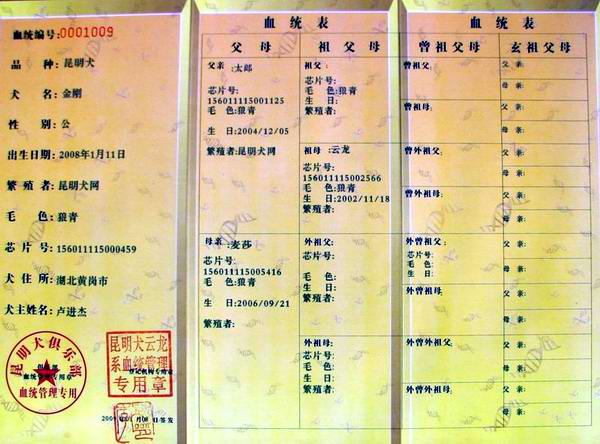 血统编号:0001009
品 种:昆明犬
犬 名:金刚
性 别:公
出生日期:2008年1月11日
繁 殖 者:昆明犬网
毛 色:狼青
芯 片 号:156011115000459
犬 住 所:湖北黄岗市
犬主姓名:卢进杰
昆明犬俱乐部
血统管理专用章
血统管理专用
昆明犬云龙
系血统管理
专用章
登记机构专用章
血 统 表
父 母
父亲:太郎
芯片号:
156011115001125
毛 色:狼青
生 日:2004/12/05
繁殖者:昆明犬网
母亲:麦莎
芯片号:
156011115005416
毛 色:狼青
生 日:2006/09/21
繁殖者:
祖 父 母
祖父:
芯片号:
毛 色:狼青
生 日:
繁殖者:
祖母:云龙
芯片号:
156011115002566
毛 色:狼青
生 日:2002/11/18
繁殖者:
外祖父:
芯片号:
毛 色:
生 日:
繁殖者:
外祖母:
芯片号:
毛 色:
生 日:
繁殖者:
血 统 表
曾 祖 父 母
曾祖父:
曾祖母:
曾外祖父:
曾外祖母:
外曾祖父:
芯片号:
毛 色:
生 日:
外曾祖母:
外曾外祖父:
外曾外祖母:
玄 祖 父 母
父 亲:
母 亲:
父 亲:
母 亲:
父 亲:
母 亲:
父 亲:
母 亲:
父 亲:
母 亲:
父 亲:
母 亲:
父 亲:
母 亲:
父 亲:
母 亲: